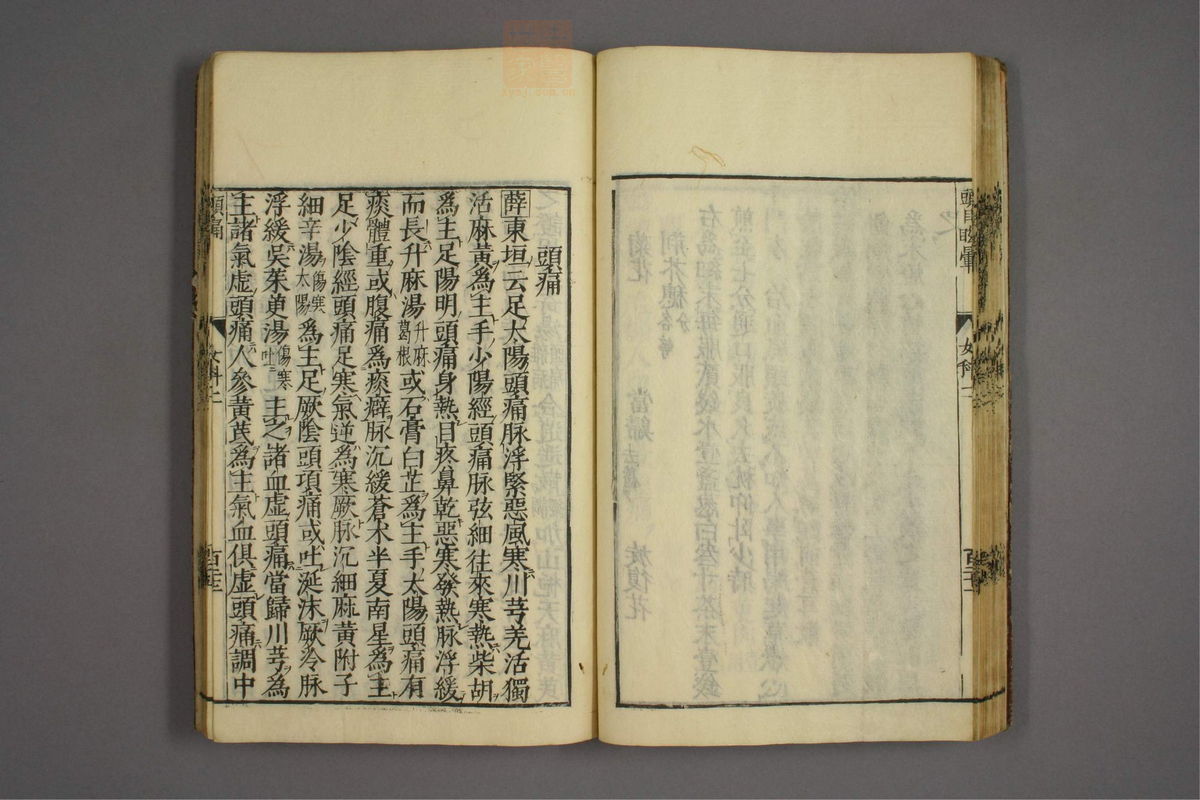 頭目眩暈
女科一
頭痛
薛東垣云足太陽頭痛脉浮緊惡風寒川芎羌活獨
活麻黃爲主手少陽經頭痛脉弦細往來寒熱柴胡
爲主足陽明頭痛身熱目疼鼻乾惡寒發熱脉浮緩
而長升麻湯升麻葛根或石膏白芷爲主手太陽頭痛有
痰體重或腹痛爲痰癖脉沉緩蒼术半夏南星爲主
足少陰經頭痛足寒氣逆爲寒厥脉沉細麻黃附子
細辛湯傷寒太陽爲主足厥陰頭項痛或吐涎沫厥冷脉
浮緩吳茱萸湯傷寒吐主之諸血虛頭痛當歸川芎爲
主諸氣虛頭痛人參黃芪爲主氣血俱虛頭痛調中
頭痛
女科一
xysj.